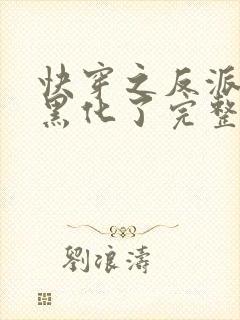 快穿之反派
黑化了完整
劉浪濤